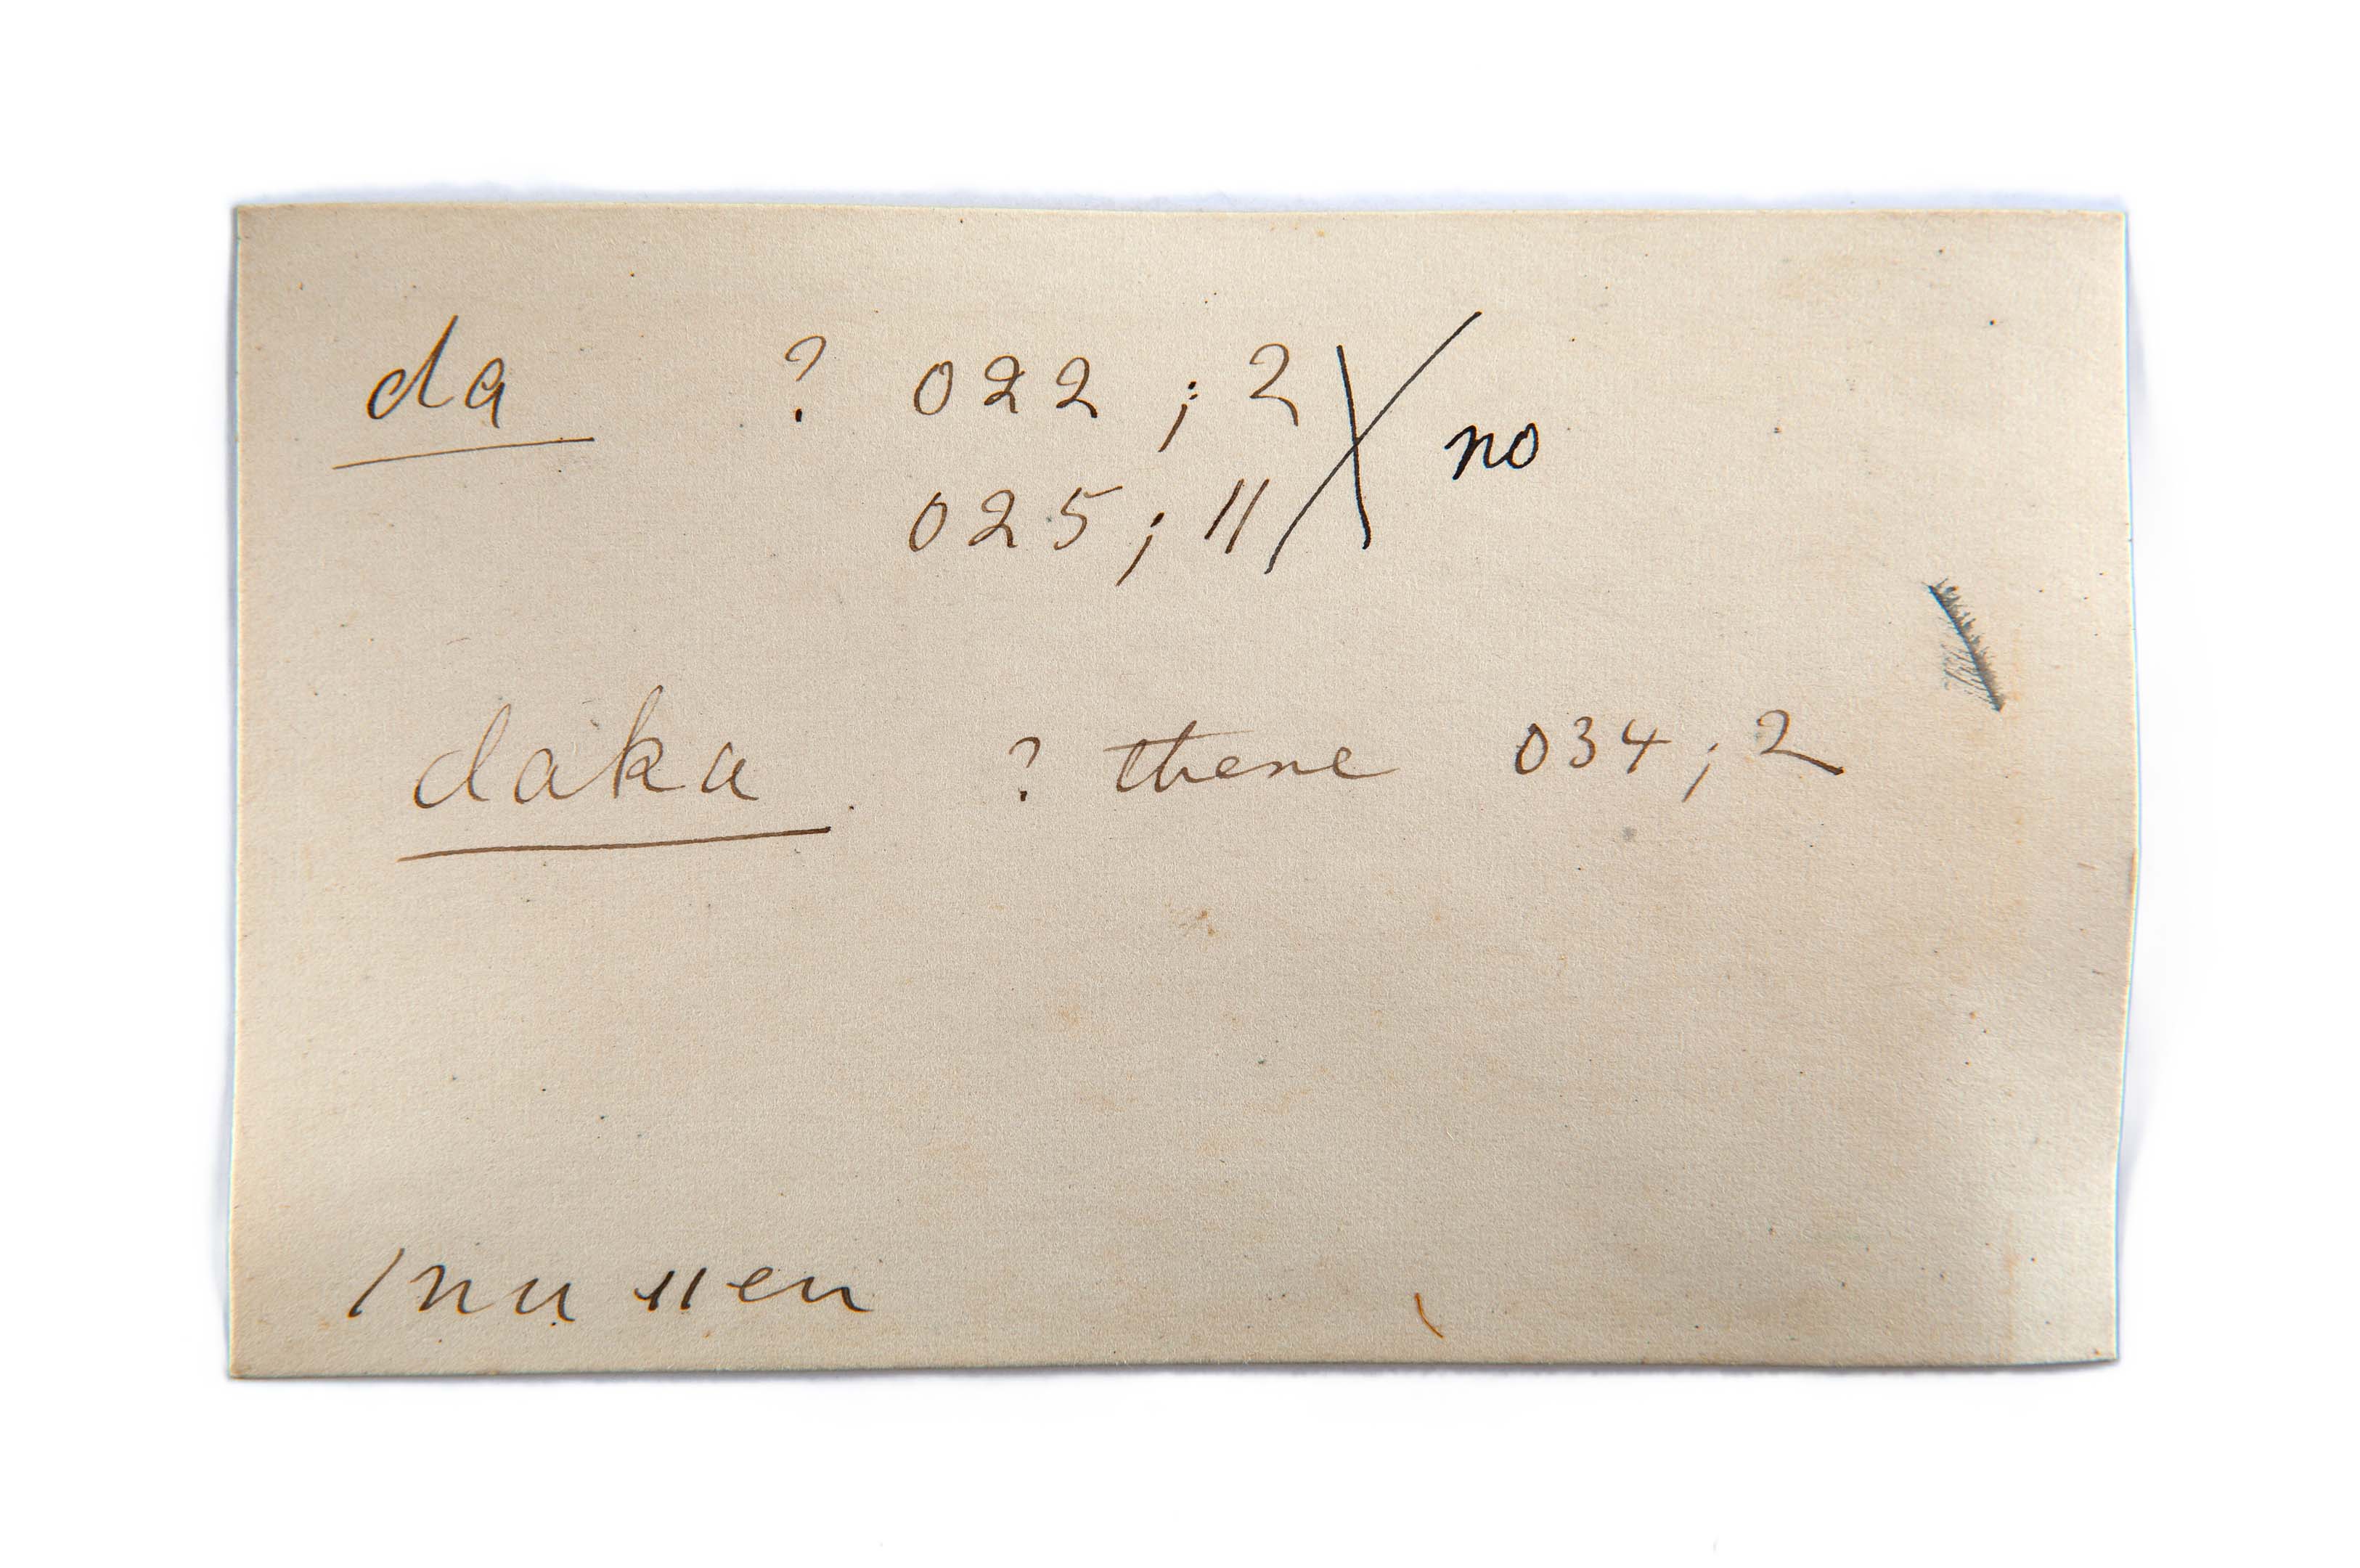 da ? 022 ; 2 X no
025 ; 11
daka . ? there 034 ; 2